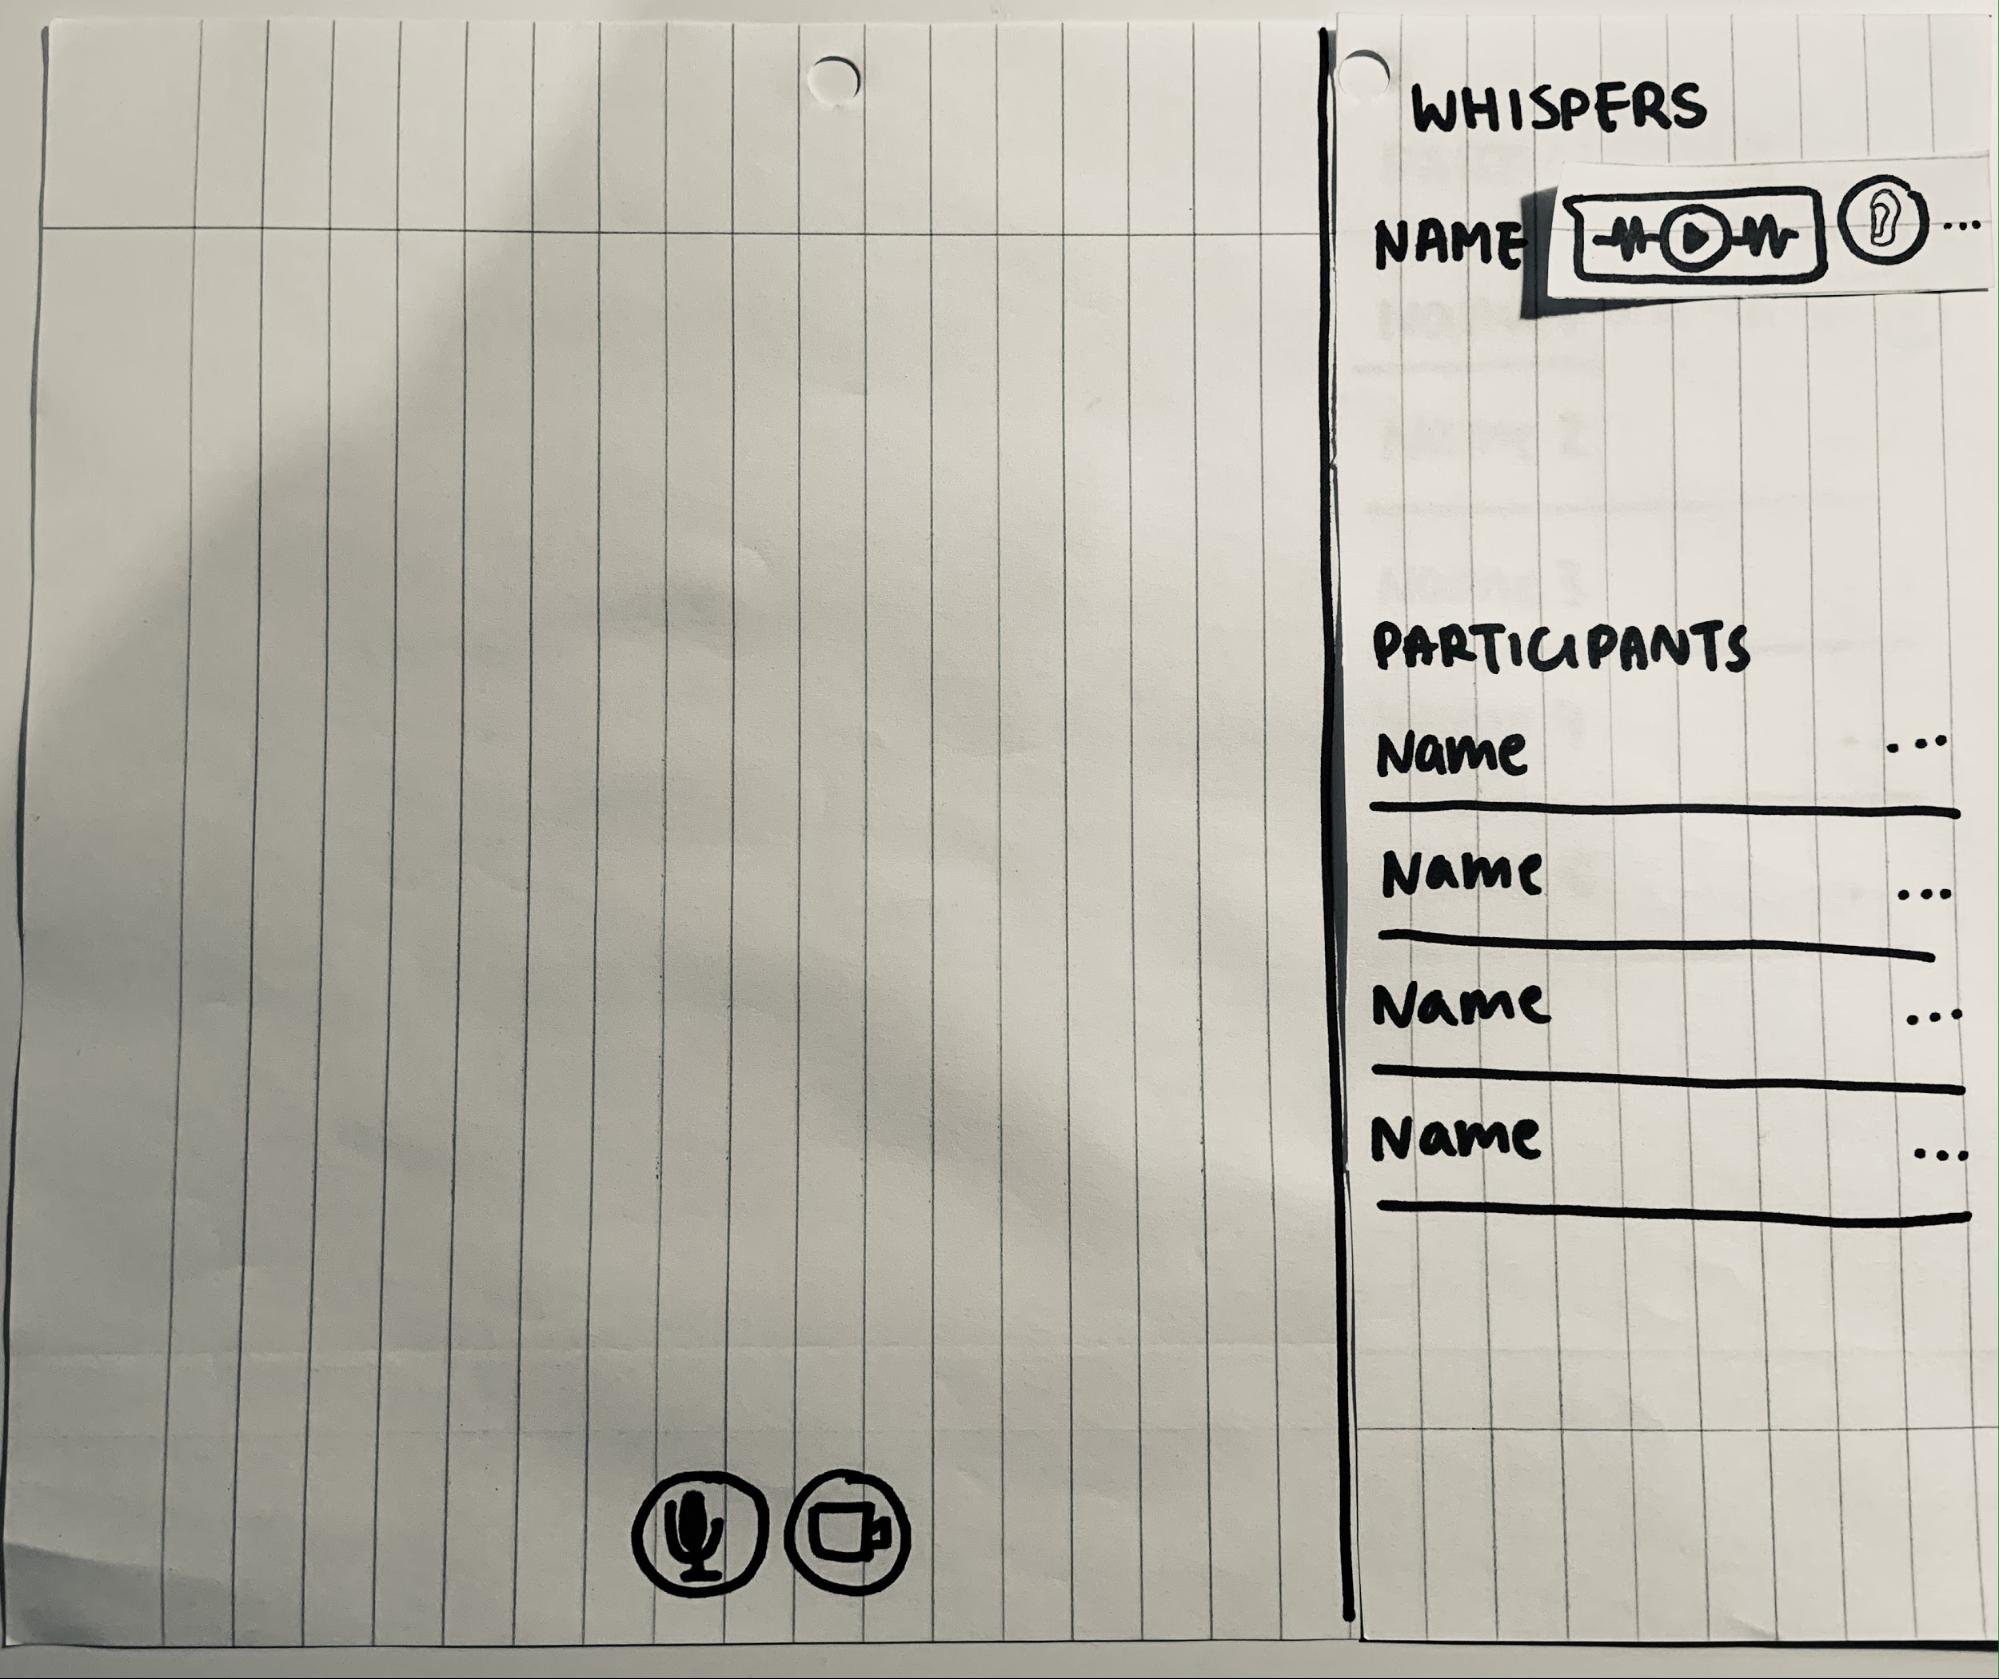 WHISPERS
NAME ...
PARTICIPANTS
Name ...
Name ...
Name ...
Name ...